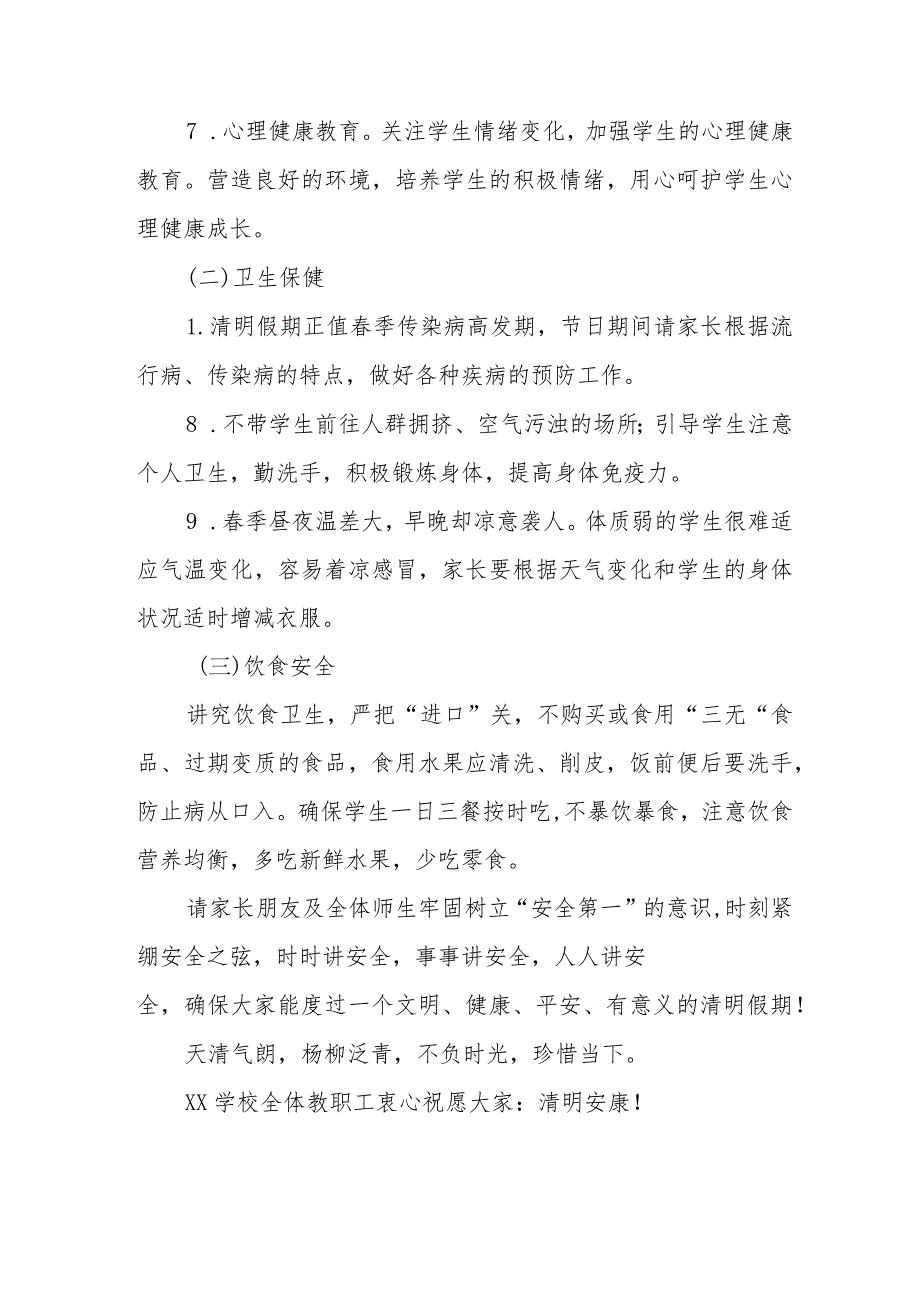 7 .心理健康教育。关注学生情绪变化，加强学生的心理健康
教育。营造良好的环境，培养学生的积极情绪，用心呵护学生心
理健康成长。
(二)卫生保健
1.清明假期正值春季传染病高发期，节日期间请家长根据流
行病、传染病的特点，做好各种疾病的预防工作。
8 .不带学生前往人群拥挤、空气污浊的场所;引导学生注意
个人卫生，勤洗手，积极锻炼身体，提高身体免疫力。
9 .春季昼夜温差大，早晚却凉意袭人。体质弱的学生很难适
应气温变化，容易着凉感冒，家长要根据天气变化和学生的身体
状况适时增减衣服。
(三)饮食安全
讲究饮食卫生，严把“进口”关，不购买或食用“三无“食
品、过期变质的食品，食用水果应清洗、削皮，饭前便后要洗手，
防止病从口入。确保学生一日三餐按时吃,不暴饮暴食，注意饮食
营养均衡，多吃新鲜水果，少吃零食。
请家长朋友及全体师生牢固树立“安全第一”的意识,时刻紧
绷安全之弦，时时讲安全，事事讲安全，人人讲安
全，确保大家能度过一个文明、健康、平安、有意义的清明假期!
天清气朗，杨柳泛青，不负时光，珍惜当下。
XX 学校全体教职工衷心祝愿大家：清明安康!